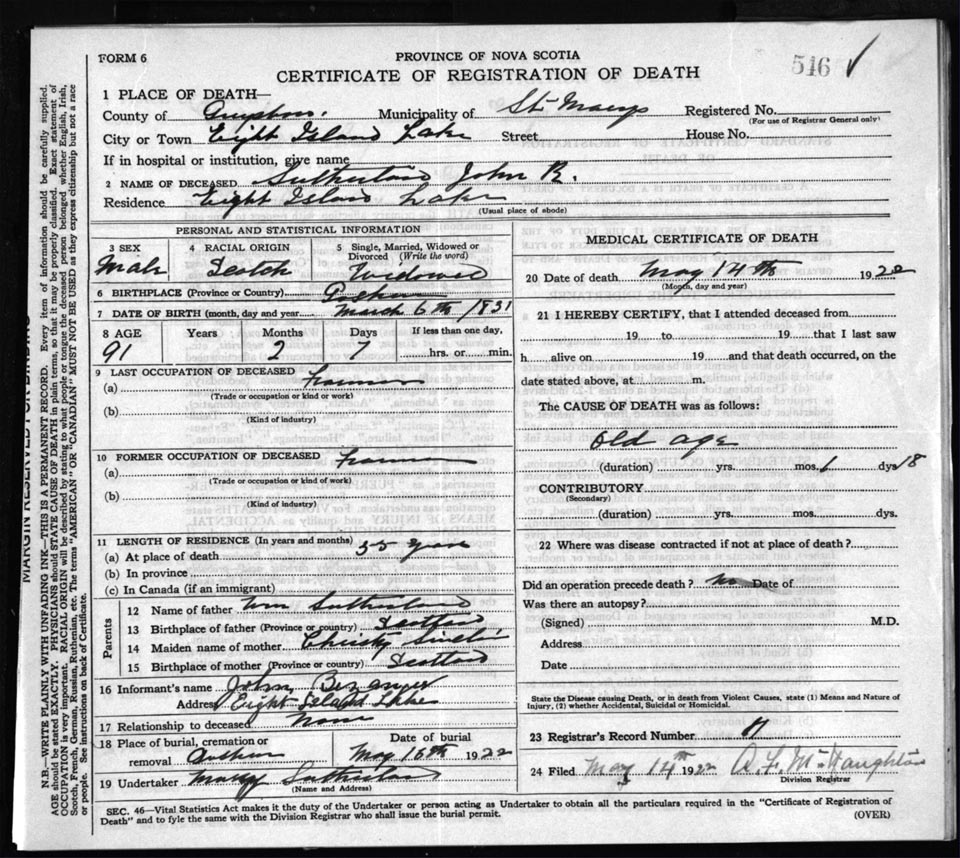 FORM 6
PROVINCE OF NOVA SCOTIA
546 ✓
CERTIFICATE OF REGISTRATION OF DEATH
1 PLACE OF DEATH—
County of Guysboro. Municipality of St. Marys Registered No.
(For use of Registrar General only)
City or Town Eight Island Lake Street House No.
If in hospital or institution, give name
2 NAME OF DECEASED Sutherland John R.
Residence Eight Island Lake
(Usual place of abode)
PERSONAL AND STATISTICAL INFORMATION
3 SEX 4 RACIAL ORIGIN 5 Single, Married, Widowed or
Divorced (Write the word)
Male Scotch Widowed
6 BIRTHPLACE (Province or Country) Pictou
7 DATE OF BIRTH (month, day and year) March 6th 1831
8 AGE Years Months Days If less than one day,
91 2 7 hrs. or min.
9 LAST OCCUPATION OF DECEASED
(a) Farmer
(Trade or occupation or kind or work)
(b)
(Kind of industry)
10 FORMER OCCUPATION OF DECEASED
(a) Farmer
(Trade or occupation or kind of work)
(b)
(Kind of industry)
11 LENGTH OF RESIDENCE (In years and months)
(a) At place of death 35 years
(b) In province
(c) In Canada (if an immigrant)
Parents
12 Name of father Wm Sutherland
13 Birthplace of father (Province or country) Scotland
14 Maiden name of mother Christy Sinclair
15 Birthplace of mother (Province or country) Scotland
16 Informant's name John
Address Eight Island Lake
17 Relationship to deceased None
18 Place of burial, cremation or Date of burial
removal May 16th 1922
19 Undertaker Sutherland
(Name and Address)
MEDICAL CERTIFICATE OF DEATH
20 Date of death May 14th 1922
(Month, day and year)
21 I HEREBY CERTIFY, that I attended deceased from
19 to 19 that I last saw
h alive on 19 and that death occurred, on the
date stated above, at m.
The CAUSE OF DEATH was as follows:
Old age
(duration) yrs. mos. 1 dys 18
CONTRIBUTORY
(Secondary)
(duration) yrs. mos. dys.
22 Where was disease contracted if not at place of death?
Did an operation precede death? no Date of
Was there an autopsy?
(Signed) M.D.
Address
Date
State the Disease causing Death, or in death from Violent Causes, state (1) Means and Nature of
Injury, (2) whether Accidental, Suicidal or Homicidal.
23 Registrar's Record Number
24 Filed May 14th 1922 A. F. McNaughton
Division Registrar
SEC. 46—Vital Statistics Act makes it the duty of the Undertaker or person acting as Undertaker to obtain all the particulars required in the "Certificate of Registration of
Death" and to fyle the same with the Division Registrar who shall issue the burial permit.
(OVER)
N.B.—WRITE PLAINLY WITH UNFADING INK—THIS IS A PERMANENT RECORD. Every item of information should be carefully supplied.
AGE should be stated EXACTLY. PHYSICIANS should STATE CAUSE OF DEATH in plain terms, so that it may be properly classified. Exact statement of
OCCUPATION is very important. RACIAL ORIGIN will be described by stating to what people or tongue the deceased person belonged whether English, Irish,
Scotch, French, German, Russian, Ruthenian, etc. The terms "AMERICAN" OR "CANADIAN" MUST NOT BE USED as they express citizenship but not a race
or people. See instructions on back of Certificate.